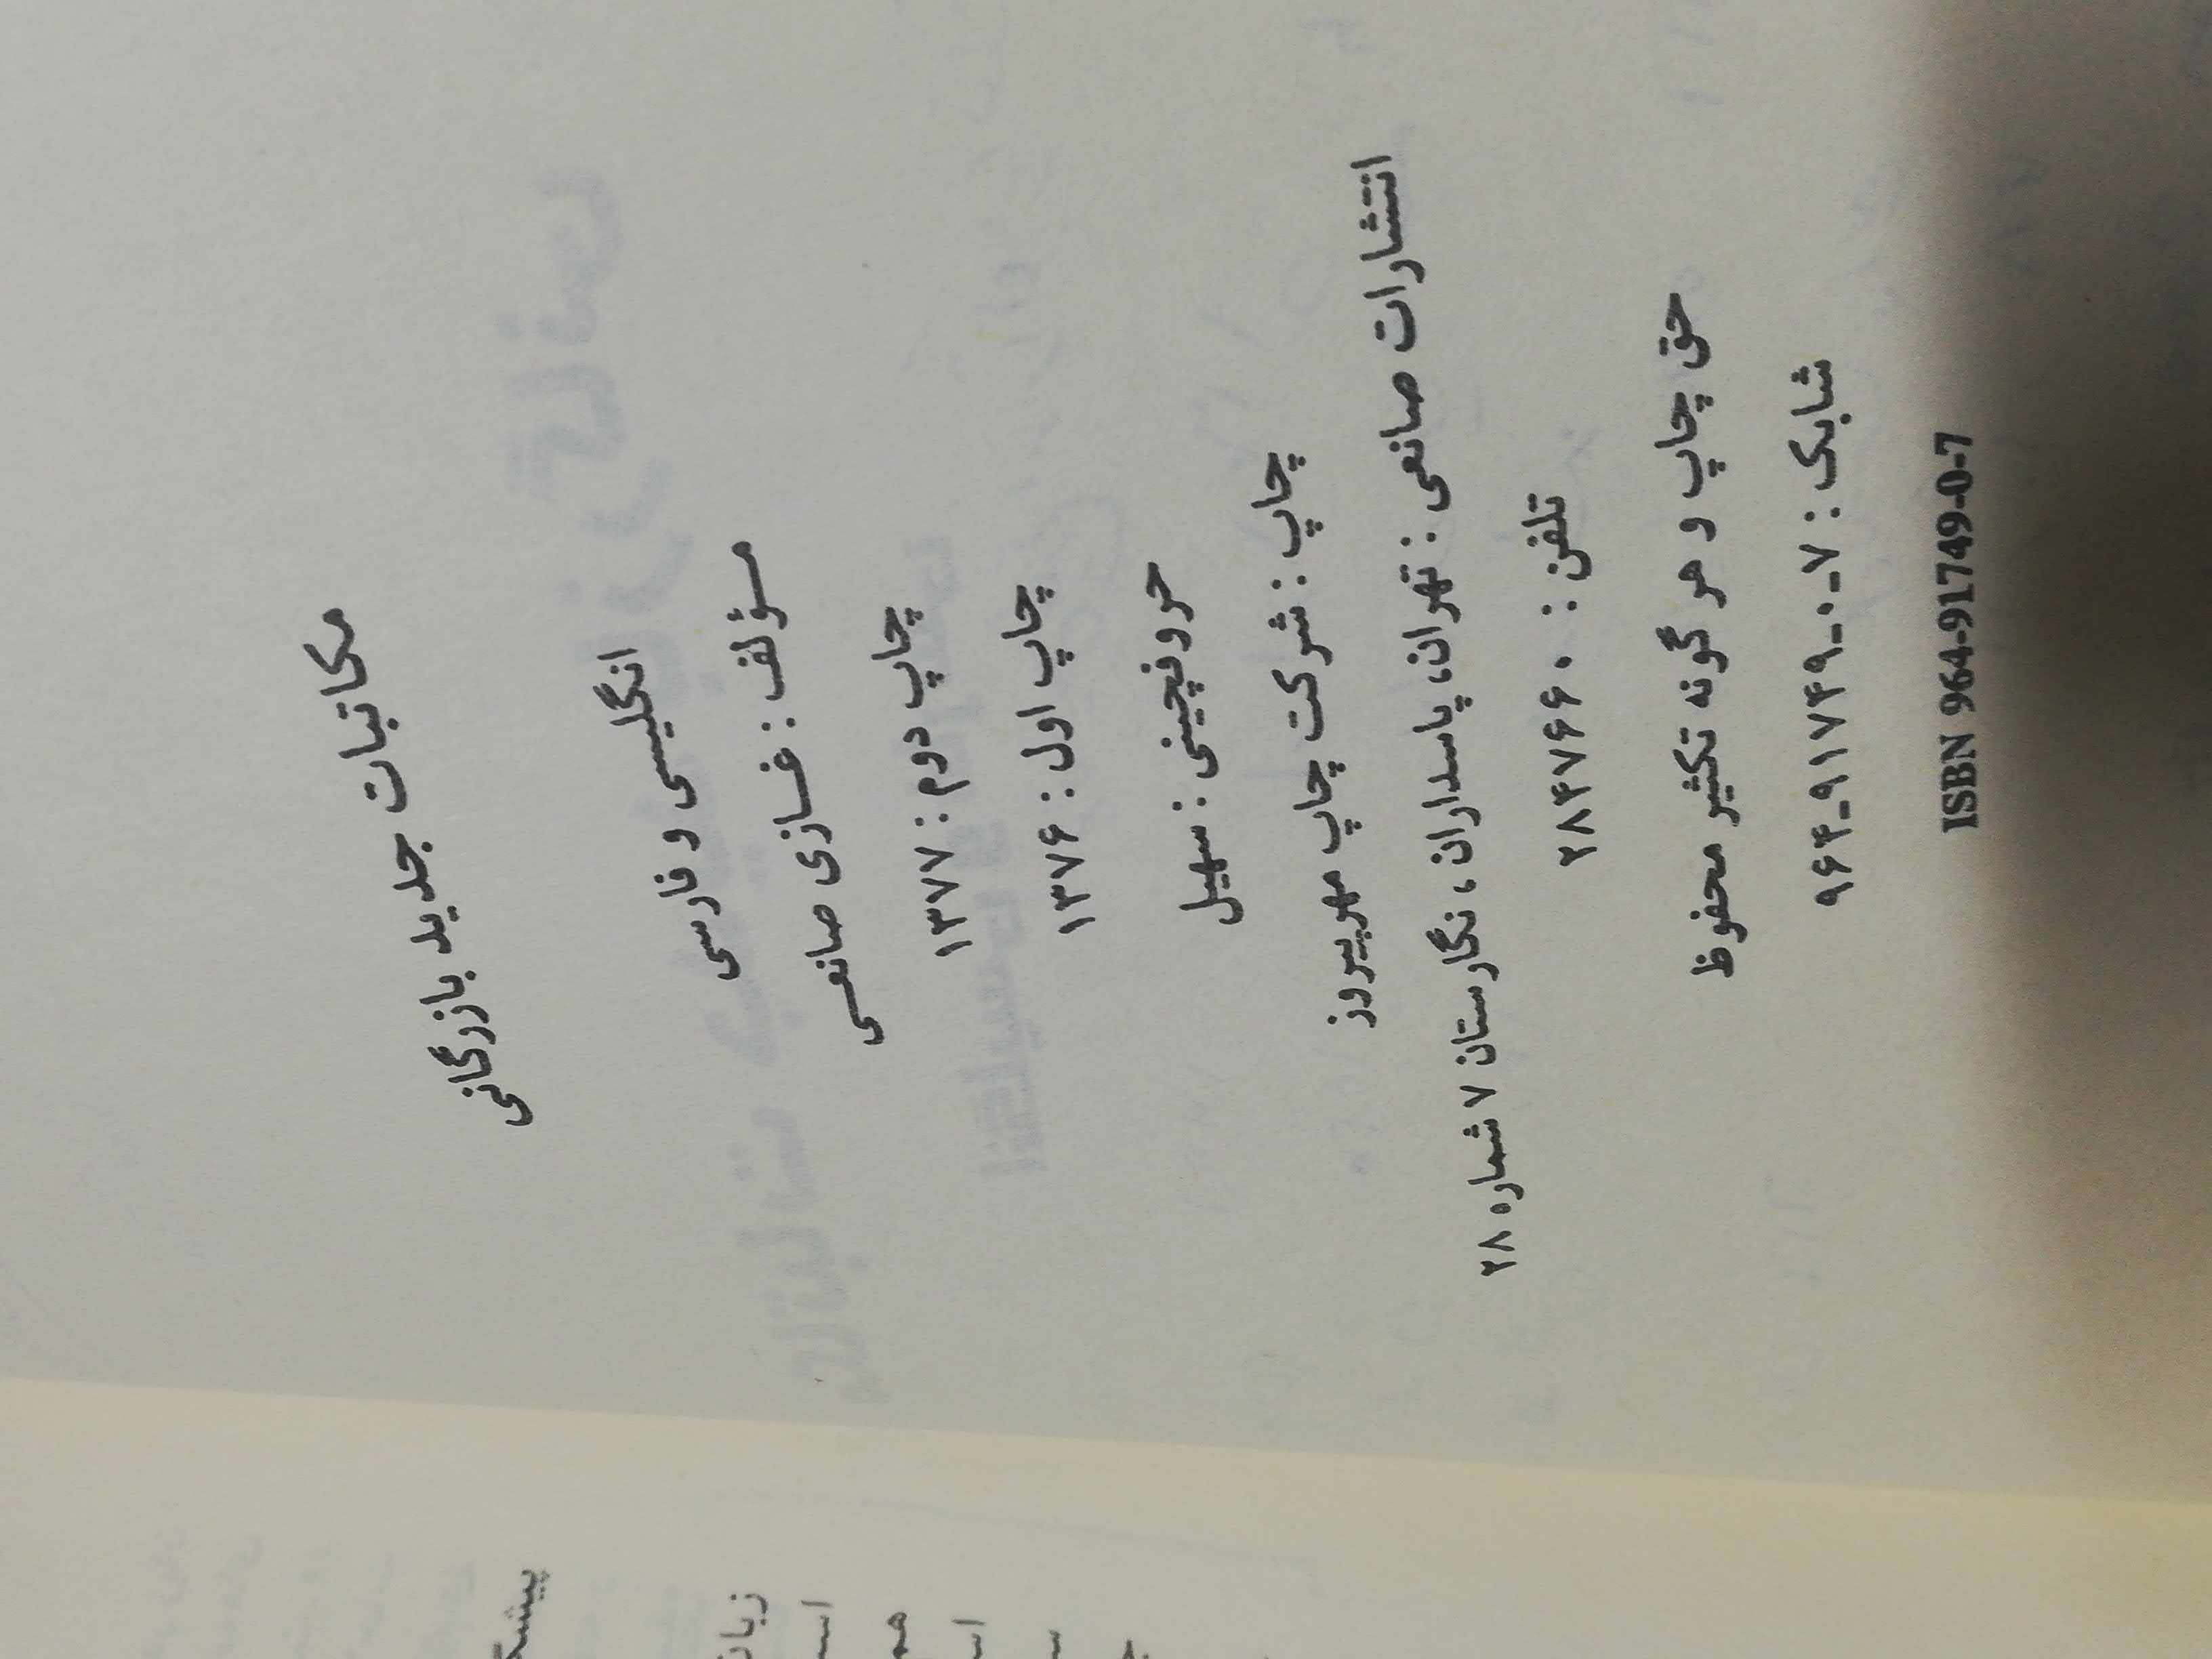 مکاتبات جدید بازرگانی
انگلیسی و فارسی
مـؤلف : غـازی صانعـی
چاپ دوم : ۱۳۷۷
چاپ اول : ۱۳۷۶
حروفچینی : سهیل
چاپ : شرکت چاپ مهرپیروز
انتشارات صانعی : تهران، پاسداران، نگارستان ۷ شماره ۲۸
تلفن : ۲۸۴۷۶۶۰
حق چاپ و هر گونه تکثیر محفوظ
شابک : ۷-۰-۹۱۷۴۹-۹۶۴
ISBN 964-91749-0-7